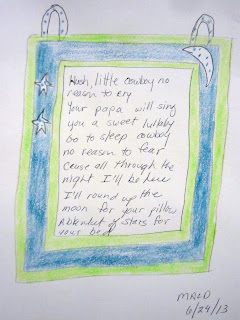 Hush, little cowboy no
reason to cry
Your papa will sing
you a sweet lullaby
Go to sleep cowboy
no reason to fear
Cause all through the
night I'll be here
I'll round up the
moon for your pillow
A blanket of stars for
your bed
MALD
6/24/13